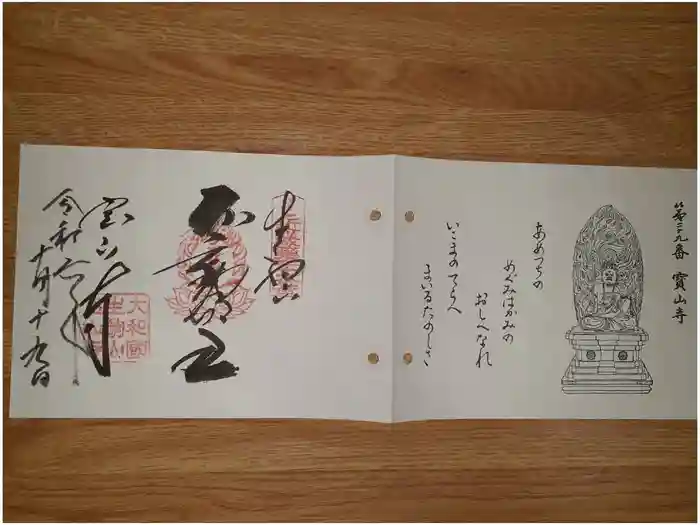 第二九番 寳山寺
あめつちの
めぐみはかみの
おしへなれ
いこまのてらへ
まいるたのしさ
不動明王
宝山寺
大和國
生駒山
令和六年
十月十九日